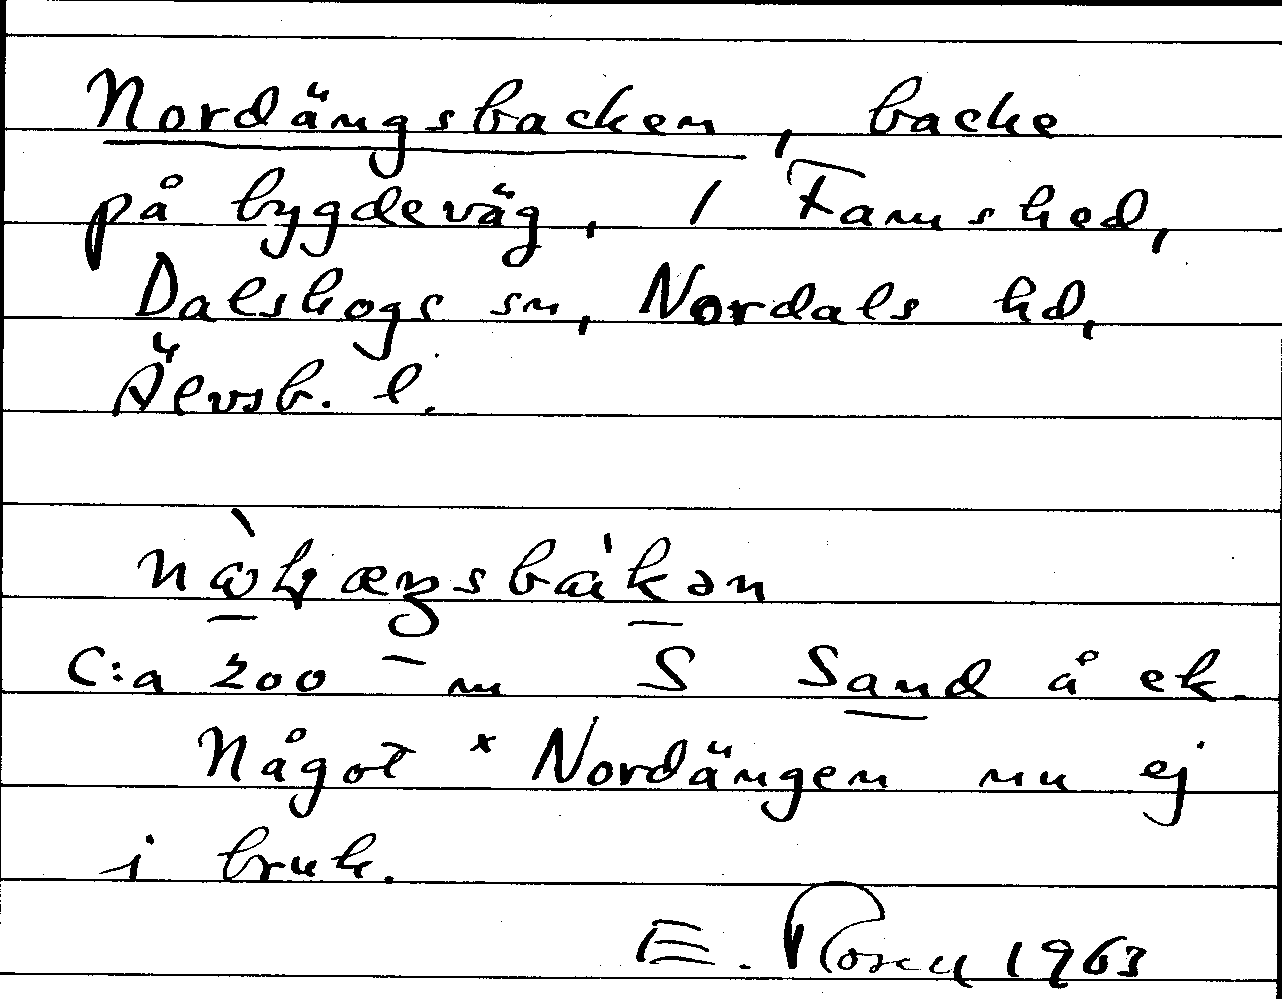 Nordängsbacken, backe
på bygdeväg, / Famshed,
Dalskogs sn, Nordals hd,
Älvsb. l.
C:a 200 m S Sand å ek.
Något * Nordängen nu ej
i bruk.
E. Rosell 1963